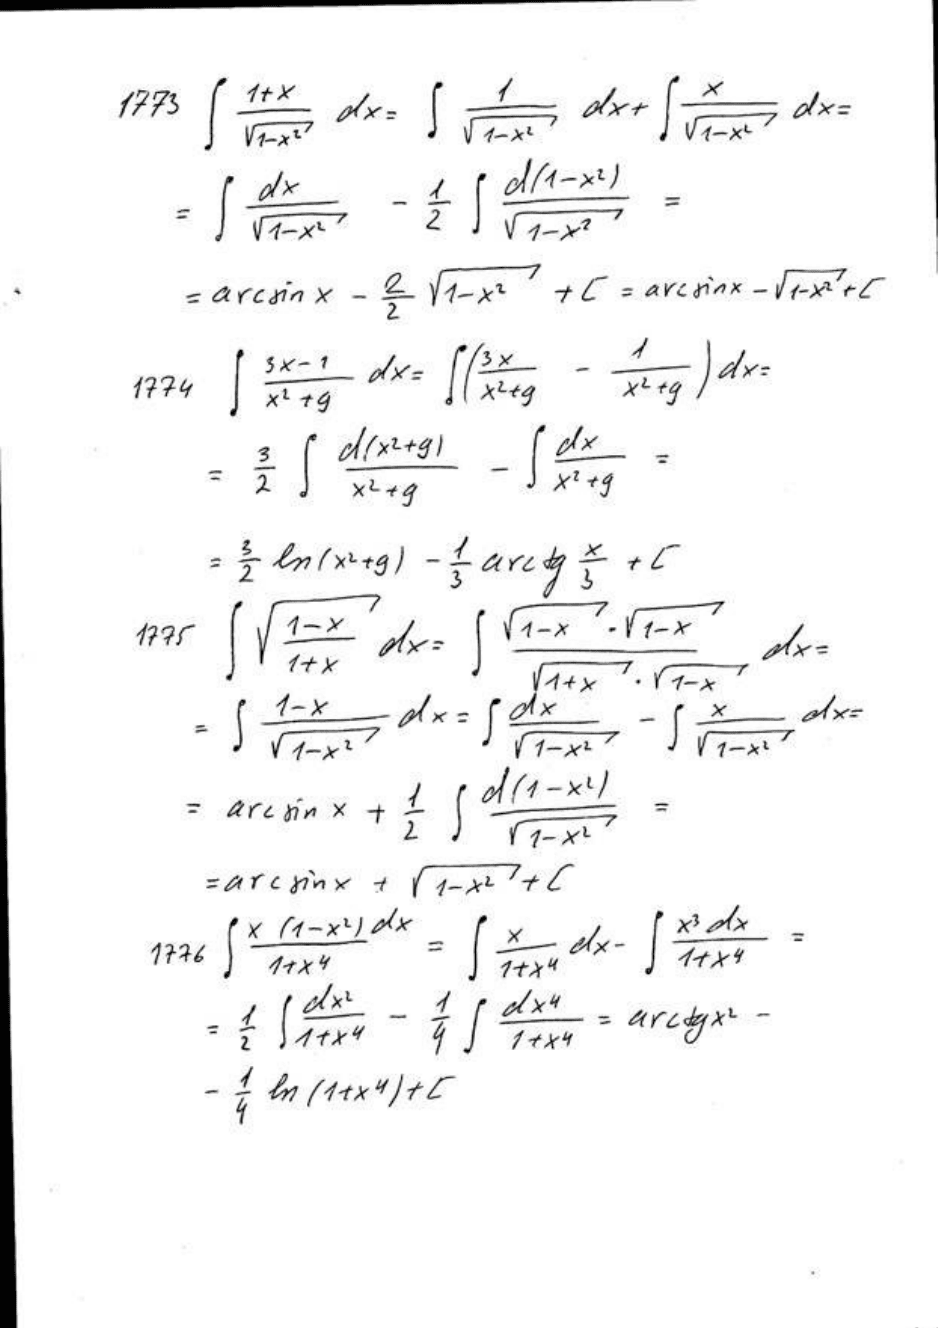 1773 ∫ (1+x)/√(1-x²) dx = ∫ 1/√(1-x²) dx + ∫ x/√(1-x²) dx =
= ∫ dx/√(1-x²) - 1/2 ∫ d(1-x²)/√(1-x²) =
= arcsin x - 2/2 √(1-x²) + C = arcsin x - √(1-x²) + C
1774 ∫ (3x-1)/(x²+9) dx = ∫ (3x/(x²+9) - 1/(x²+9)) dx =
= 3/2 ∫ d(x²+9)/(x²+9) - ∫ dx/(x²+9) =
= 3/2 ln(x²+9) - 1/3 arctg x/3 + C
1775 ∫ √((1-x)/(1+x)) dx = ∫ (√(1-x) · √(1-x))/(√(1+x) · √(1-x)) dx =
= ∫ (1-x)/√(1-x²) dx = ∫ dx/√(1-x²) - ∫ x/√(1-x²) dx =
= arcsin x + 1/2 ∫ d(1-x²)/√(1-x²) =
= arcsin x + √(1-x²) + C
1776 ∫ x(1-x²)dx/(1+x⁴) = ∫ x/(1+x⁴) dx - ∫ x³dx/(1+x⁴) =
= 1/2 ∫ dx²/(1+x⁴) - 1/4 ∫ dx⁴/(1+x⁴) = arctg x² -
- 1/4 ln(1+x⁴) + C